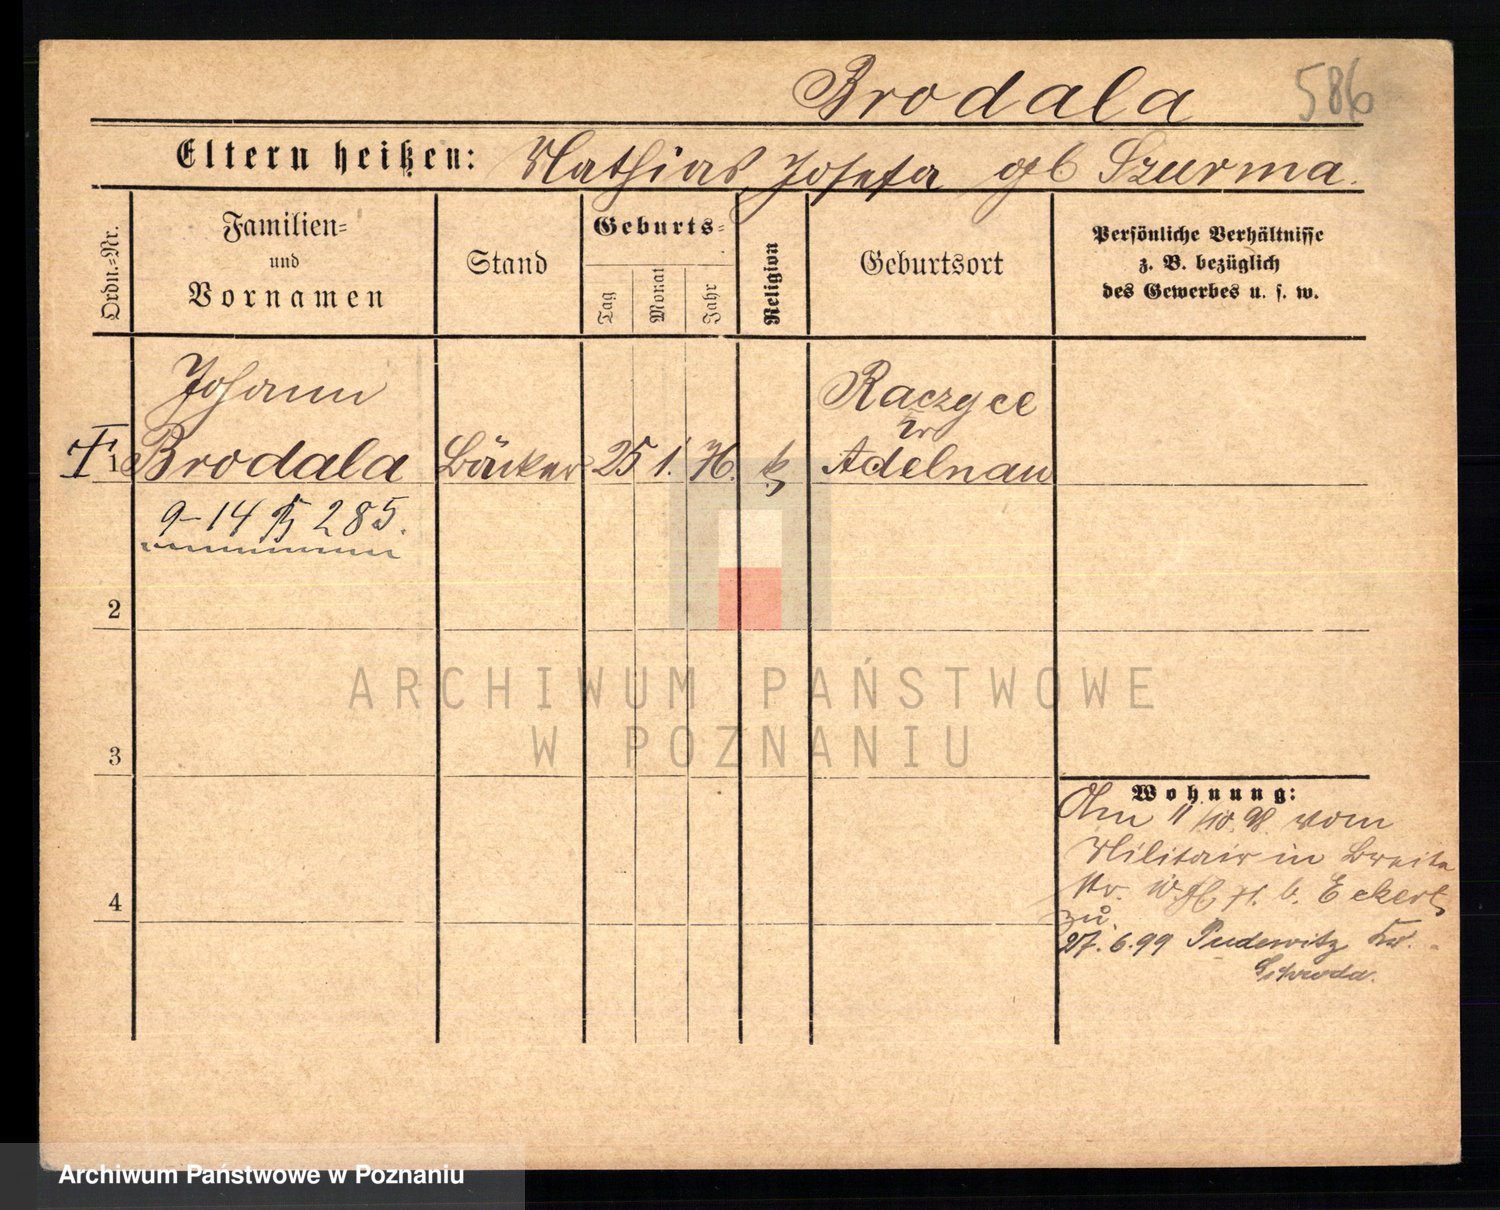 Brodala 586
Eltern heißen: Mathias, Josefa geb Szurma.
Ordn.-Nr.
Familien-
und
Vornamen
Stand
Geburts-
Tag
Monat
Jahr
Religion
Geburtsort
Persönliche Verhältnisse
z. B. bezüglich
des Gewerbes u. s. w.
Johann
1 Brodala Bäcker 25 1. 76. k
Raczyce
Kr
Adelnau
9-14 285.
2
3
4
Wohnung:
Am 11/10. 98. vom
Militair in Breite
str. b. Eckert
zu.
27. 6. 99 Pudewitz Kr.
Schroda.
ARCHIWUM PAŃSTWOWE
W POZNANIU
Archiwum Państwowe w Poznaniu